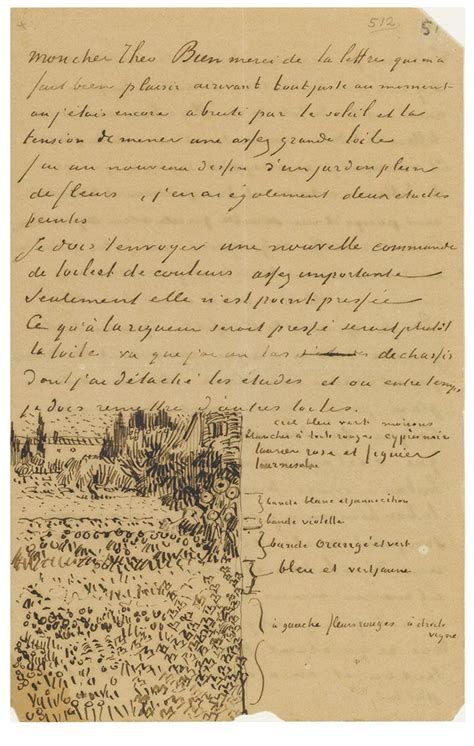 512 5
Mon cher Theo Bien merci de ta lettre qui m'a
fait bien plaisir arrivant tout juste au moment
ou j'étais encore abruti par le soleil et la
tension de mener une assez grande toile
J'ai un nouveau dessin d'un jardin plein
de fleurs, j'en ai également deux etudes
peintes
Je dois t'envoyer une nouvelle commande
de toile et de couleurs assez importante
Seulement elle n'est point pressée
Ce qu'à la rigueur serait pressé serait plutôt
la toile vu que j'ai un tas de chassis
dont j'ai détaché les études et ou entretemps
je dois remettre d'autres toiles.
ciel bleu vert maisons
blanches à toits rouges cyprès noir
laurier rose et figuier
tournesols
bande blanc et jaune
bande violette
bande orangé et vert
bleu et vert jaune
à gauche fleurs rouges à droite
vigne